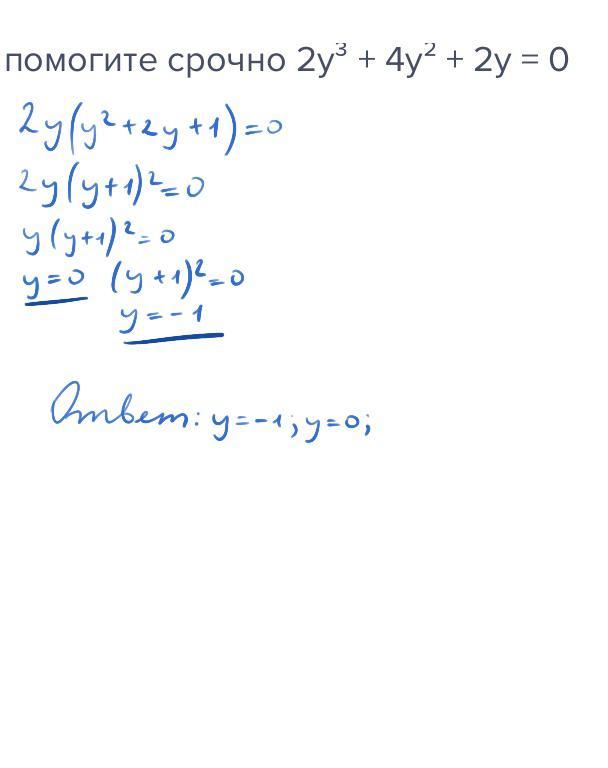 помогите срочно 2y³ + 4y² + 2y = 0
2y(y²+2y+1)=0
2y(y+1)²=0
y(y+1)²=0
y=0 (y+1)²=0
y=-1
Ответ: y=-1; y=0;